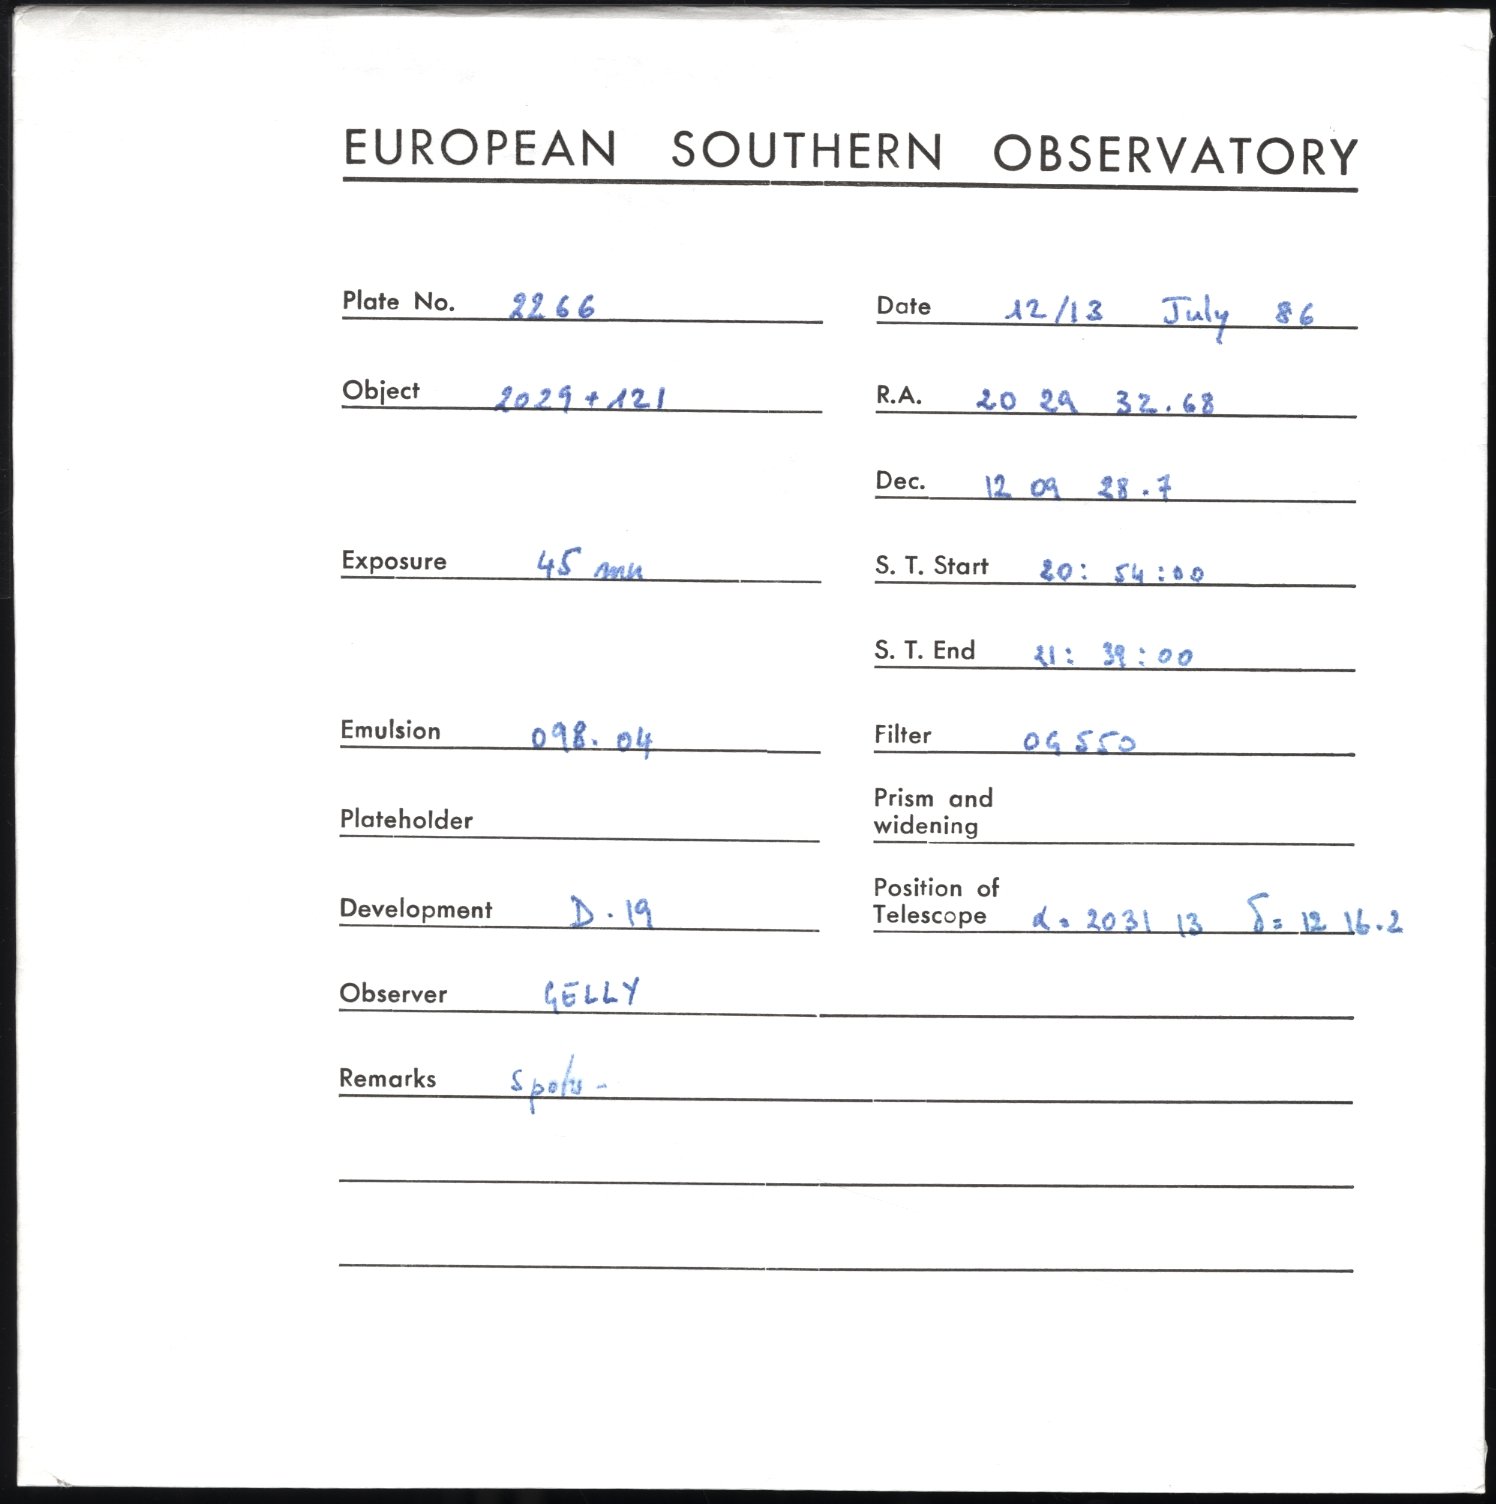 EUROPEAN SOUTHERN OBSERVATORY
Plate No. 2266
Date 12/13 July 86
Object 2029+121
R.A. 20 29 32.68
Dec. 12 09 28.7
Exposure 45 mn
S. T. Start 20: 54:00
S. T. End 21: 39:00
Emulsion 098.04
Filter OG 550
Plateholder
Prism and
widening
Development D.19
Position of
Telescope α= 2031 13 δ= 12 16.2
Observer GELLY
Remarks